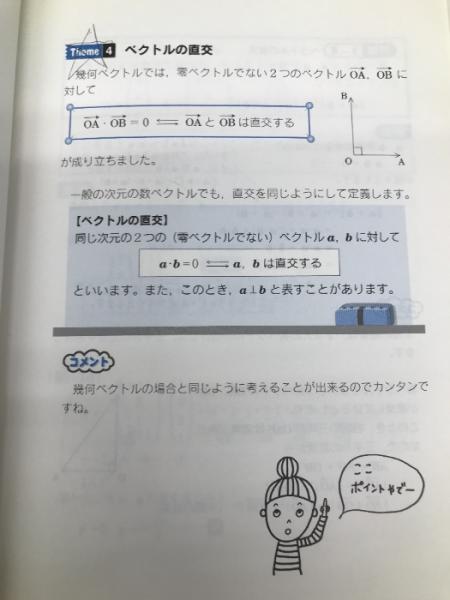 Theme 4 ベクトルの直交
幾何ベクトルでは，零ベクトルでない2つのベクトル OA→，OB→ に
対して
B
OA→・OB→ = 0 ⟺ OA→ と OB→ は直交する
O A
が成り立ちました。
一般の次元の数ベクトルでも，直交を同じようにして定義します。
【ベクトルの直交】
同じ次元の2つの（零ベクトルでない）ベクトル a，b に対して
a・b=0 ⟺ a，b は直交する
といいます。また，このとき，a⊥b と表すことがあります。
コメント
幾何ベクトルの場合と同じように考えることが出来るのでカンタンで
すね。
ここ
ポイントやでー